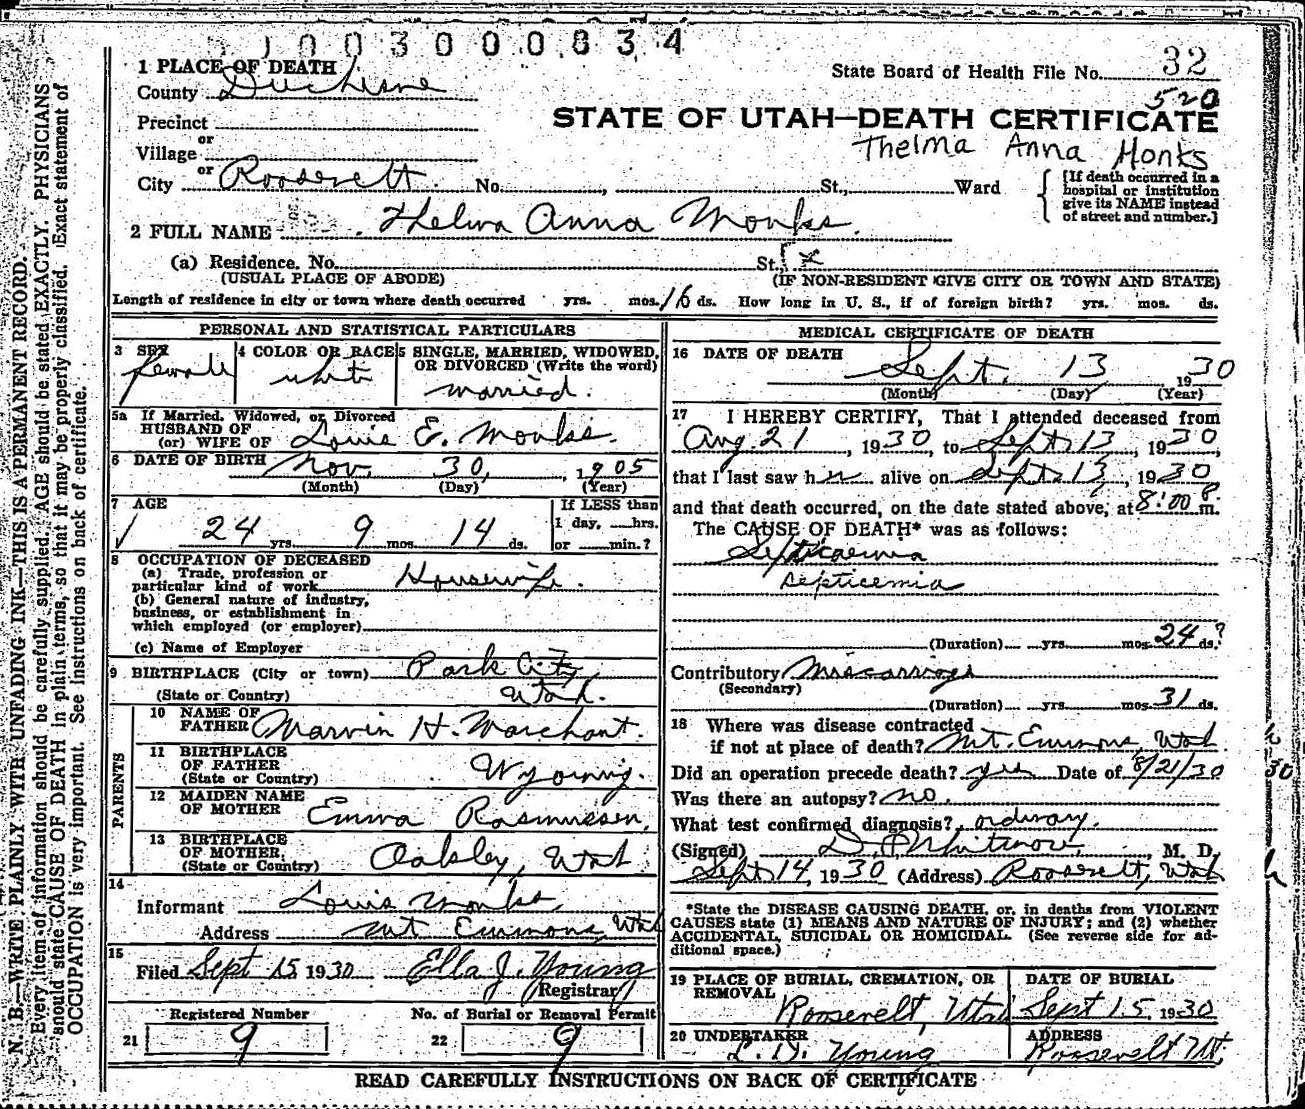 1003000834
1 PLACE OF DEATH
County Duchesne
State Board of Health File No. 32
520
Precinct
or
Village
or
City Roosevelt. No. , St., Ward
STATE OF UTAH—DEATH CERTIFICATE
Thelma Anna Monks
[If death occurred in a
hospital or institution
give its NAME instead
of street and number.]
2 FULL NAME Thelma Anna Monks.
(a) Residence, No. St. x
(USUAL PLACE OF ABODE) (IF NON-RESIDENT GIVE CITY OR TOWN AND STATE)
Length of residence in city or town where death occurred yrs. mos. 16 ds. How long in U. S., if of foreign birth? yrs. mos. ds.
PERSONAL AND STATISTICAL PARTICULARS
3 SEX female
4 COLOR OR RACE white
5 SINGLE, MARRIED, WIDOWED,
OR DIVORCED (Write the word)
married.
5a If Married, Widowed, or Divorced
HUSBAND OF
(or) WIFE OF Louis E. Monks.
6 DATE OF BIRTH Nov. 30, 1905
(Month) (Day) (Year)
7 AGE
24 yrs. 9 mos. 14 ds.
If LESS than
1 day, hrs.
or min.?
8 OCCUPATION OF DECEASED
(a) Trade, profession or
particular kind of work Housewife.
(b) General nature of industry,
business, or establishment in
which employed (or employer)
(c) Name of Employer
9 BIRTHPLACE (City or town) Park City
(State or Country) Utah.
PARENTS
10 NAME OF
FATHER Marvin H. Marchant.
11 BIRTHPLACE
OF FATHER
(State or Country) Wyoming.
12 MAIDEN NAME
OF MOTHER Emma Rasmussen,
13 BIRTHPLACE
OF MOTHER,
(State or Country) Oakley, Utah
14
Informant Louis Monks,
Address Mt Emmons, Utah
15
Filed Sept 15 1930 Ella J. Young
Registrar
Registered Number
21 9
No. of Burial or Removal Permit
22 9
MEDICAL CERTIFICATE OF DEATH
16 DATE OF DEATH
Sept. 13 1930
(Month) (Day) (Year)
17 I HEREBY CERTIFY, That I attended deceased from
Aug. 21, 1930, to Sept 13, 1930
that I last saw her alive on Sept. 13, 1930
and that death occurred, on the date stated above, at 8:00 P.m.
The CAUSE OF DEATH* was as follows:
Septicaemia
septicemia
(Duration) yrs. mos. 24 ds.?
Contributory Miscarriage
(Secondary)
(Duration) yrs. mos. 31 ds.
18 Where was disease contracted
if not at place of death? Mt. Emmons, Utah
Did an operation precede death? yes Date of 8/21/30
Was there an autopsy? no.
What test confirmed diagnosis? ordinary.
(Signed) , M. D.
Sept 14, 1930 (Address) Roosevelt, Utah
*State the DISEASE CAUSING DEATH, or, in deaths from VIOLENT
CAUSES state (1) MEANS AND NATURE OF INJURY; and (2) whether
ACCIDENTAL, SUICIDAL OR HOMICIDAL. (See reverse side for ad-
ditional space.)
19 PLACE OF BURIAL, CREMATION, OR
REMOVAL
Roosevelt, Utah
DATE OF BURIAL
Sept 15, 1930
20 UNDERTAKER
L. D. Young
ADDRESS
Roosevelt Ut.
READ CAREFULLY INSTRUCTIONS ON BACK OF CERTIFICATE
N. B.—WRITE PLAINLY WITH UNFADING INK—THIS IS A PERMANENT RECORD.
Every item of information should be carefully supplied. AGE should be stated EXACTLY. PHYSICIANS
should state CAUSE OF DEATH in plain terms, so that it may be properly classified. Exact statement of
OCCUPATION is very important. See instructions on back of certificate.
30